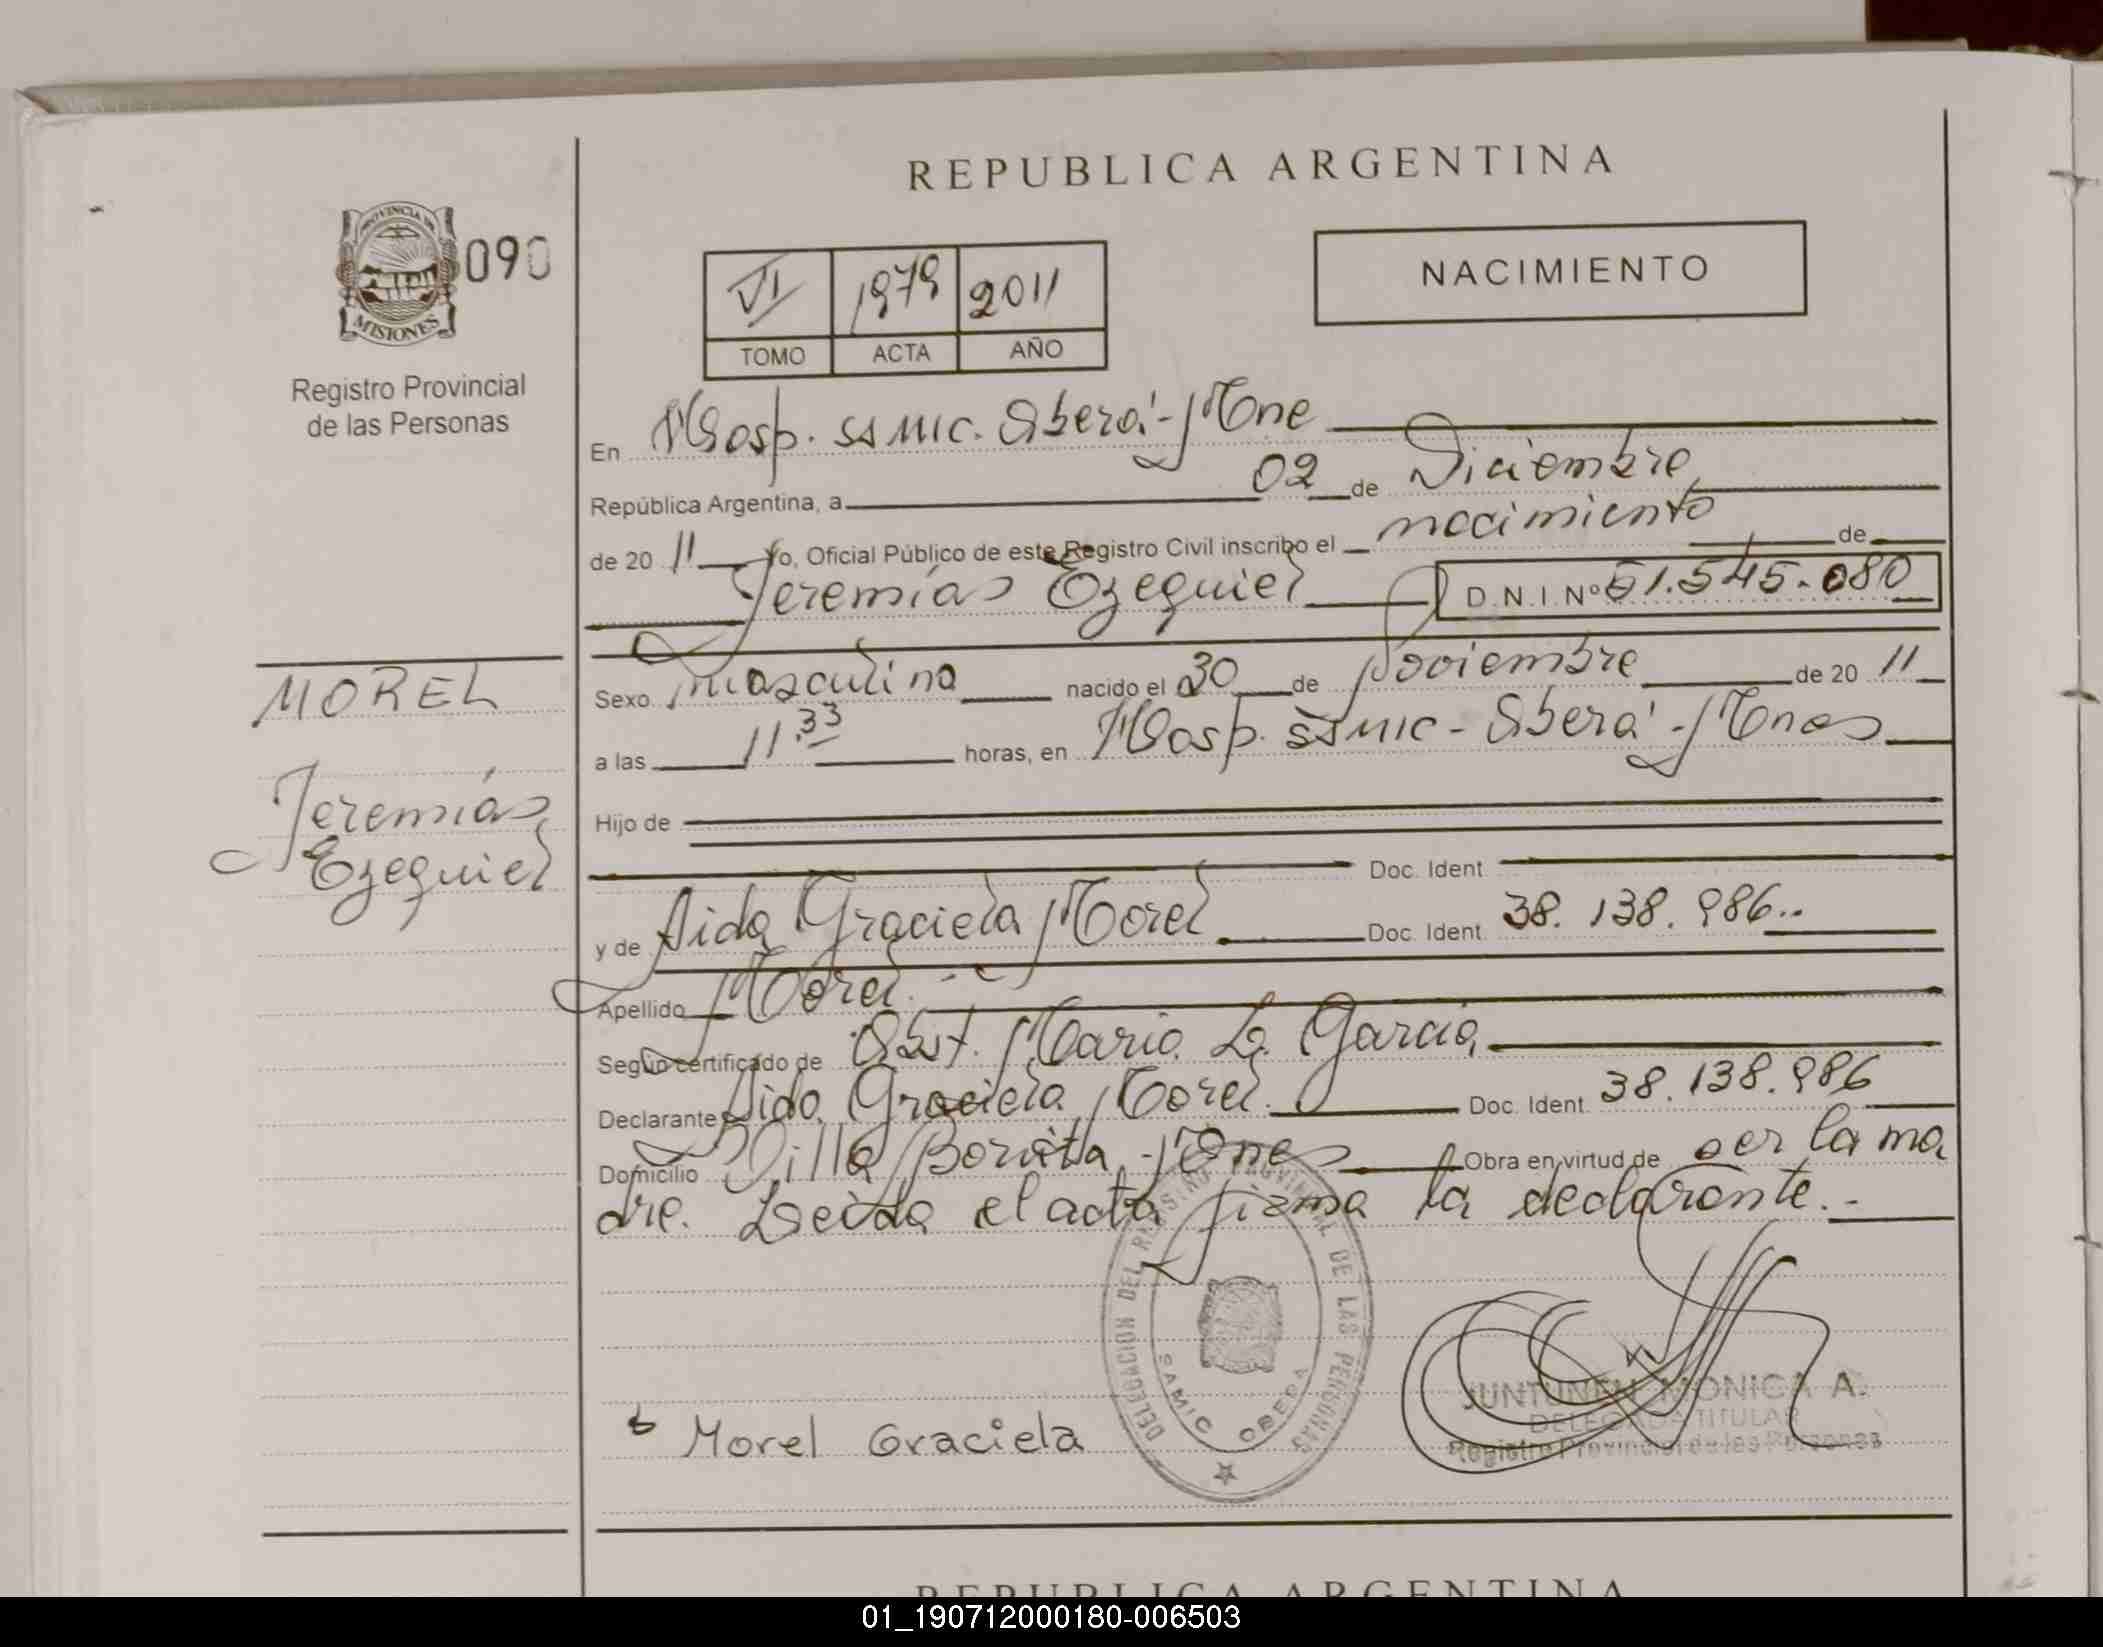 REPUBLICA ARGENTINA
PROVINCIA DE
MISIONES
090
Registro Provincial
de las Personas
VI 1979 2011
TOMO ACTA AÑO
NACIMIENTO
En Hosp. SAMIC. Oberá - Mnes
República Argentina, a 02 de Diciembre
de 20 11 Yo, Oficial Público de este Registro Civil inscribo el nacimiento de
Jeremías Ezequiel D.N.I Nº 51.545.080
MOREL
Jeremías
Ezequiel
Sexo masculino nacido el 30 de Noviembre de 20 11
a las 11.33 horas, en Hosp. SAMIC - Oberá - Mnes
Hijo de
Doc. Ident
y de Aida Graciela Morel Doc. Ident. 38.138.986..
Apellido Morel.-
Según certificado de Obst. Mario L. Garcia
Declarante Aida Graciela Morel. Doc. Ident. 38.138.986
Domicilio Villa Bonita - Mnes Obra en virtud de ser la ma
dre. Leida el acta firma la declarante.-
DELEGACION DEL REGISTRO PROVINCIAL DE LAS PERSONAS
SAMIC OBERA
Morel Graciela
JUNTUNEN MONICA A.
DELEGADA TITULAR
Registro Provincial de las Personas
REPUBLICA ARGENTINA
01_190712000180-006503